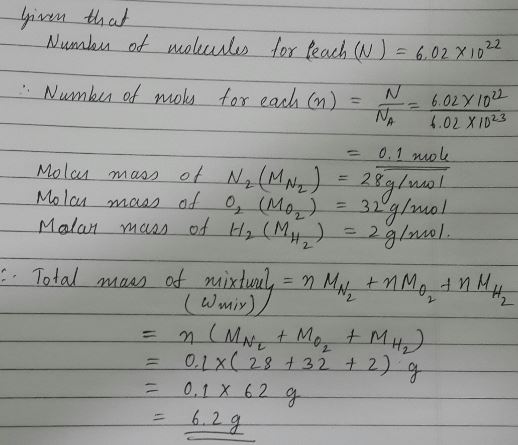 Given that
Number of molecules for each (N) = 6.02 X 10²²
∴ Number of mols for each (n) = N/N_A = 6.02 X 10²²/6.02 X 10²³
= 0.1 mole
Molar mass of N₂ (M_N₂) = 28g/mol
Molar mass of O₂ (M_O₂) = 32g/mol
Molar mass of H₂ (M_H₂) = 2g/mol.
∴ Total mass of mixture = n M_N₂ + n M_O₂ + n M_H₂
(Wmix)
= n (M_N₂ + M_O₂ + M_H₂)
= 0.1 x (28 + 32 + 2) g
= 0.1 x 62 g
= 6.2 g